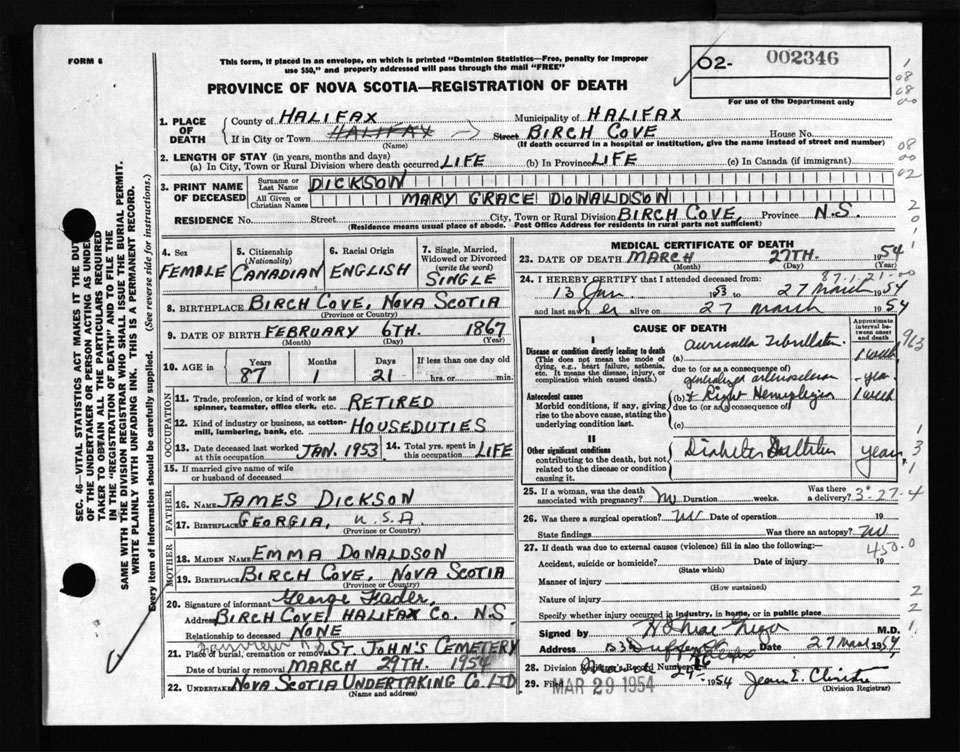 FORM 6
This form, if placed in an envelope, on which is printed "Dominion Statistics—Free, penalty for improper
use $50," and properly addressed will pass through the mail "FREE"
02- 002346
For use of the Department only
PROVINCE OF NOVA SCOTIA—REGISTRATION OF DEATH
1. PLACE OF DEATH
County of HALIFAX Municipality of HALIFAX
If in City or Town HALIFAX Street BIRCH COVE House No.
(Name) (If death occurred in a hospital or institution, give the name instead of street and number)
2. LENGTH OF STAY (in years, months and days)
(a) In City, Town or Rural Division where death occurred LIFE (b) In Province LIFE (c) In Canada (if immigrant)
3. PRINT NAME OF DECEASED
Surname or Last Name DICKSON
All Given or Christian Names MARY GRACE DONALDSON
RESIDENCE No. Street City, Town or Rural Division BIRCH COVE, Province N.S.
(Residence means usual place of abode. Post Office Address for residents in rural parts not sufficient)
4. Sex FEMALE
5. Citizenship (Nationality) CANADIAN
6. Racial Origin ENGLISH
7. Single, Married, Widowed or Divorced (write the word) SINGLE
8. BIRTHPLACE BIRCH COVE, NOVA SCOTIA
(Province or Country)
9. DATE OF BIRTH FEBRUARY 6TH. 1867
(Month) (Day) (Year)
10. AGE in Years Months Days If less than one day old
87 1 21 hrs. or min.
OCCUPATION
11. Trade, profession, or kind of work as
spinner, teamster, office clerk, etc. RETIRED
12. Kind of industry or business, as cotton-
mill, lumbering, bank, etc. HOUSEDUTIES
13. Date deceased last worked at this occupation JAN. 1953
14. Total yrs. spent in this occupation LIFE
15. If married give name of wife
or husband of deceased
FATHER
16. NAME JAMES DICKSON
17. BIRTHPLACE GEORGIA, U.S.A.
(Province or Country)
MOTHER
18. MAIDEN NAME EMMA DONALDSON
19. BIRTHPLACE BIRCH COVE, NOVA SCOTIA
(Province or Country)
20. Signature of informant George Fader,
Address BIRCH COVE HALIFAX CO. N.S.
Relationship to deceased NONE
Fairview N.S.
21. Place of burial, cremation or removal ST. JOHN'S CEMETERY
Date of burial or removal MARCH 29TH. 1954
22. Undertaker NOVA SCOTIA UNDERTAKING CO. LTD
(Name and address)
MEDICAL CERTIFICATE OF DEATH
23. DATE OF DEATH MARCH 27TH. 1954
(Month) (Day) (Year)
87-1-21-00
24. I HEREBY CERTIFY that I attended deceased from:
13 Jan. 1953 to 27 March 1954
and last saw her alive on 27 March 1954
CAUSE OF DEATH
Approximate interval between onset and death
I
Disease or condition directly leading to death
(This does not mean the mode of
dying, e.g., heart failure, asthenia,
etc. It means the disease, injury, or
complication which caused death.)
(a) Auricular Fibrillation 1 week
due to (or as a consequence of)
generalized arteriosclerosis year
Antecedent causes
Morbid conditions, if any, giving
rise to the above cause, stating the
underlying condition last.
(b) & Right Hemiplegia 1 week
due to (or as a consequence of)
(c)
II
Other significant conditions
contributing to the death, but not
related to the disease or condition
causing it.
Diabetes Mellitus years
25. If a woman, was the death associated with pregnancy? No Duration weeks. Was there a delivery?
3-27-4
26. Was there a surgical operation? No Date of operation 19
State findings Was there an autopsy? No
27. If death was due to external causes (violence) fill in also the following:—
450.0
Accident, suicide or homicide? Date of injury 19
(State which)
Manner of injury
(How sustained)
Nature of injury
Specify whether injury occurred in industry, in home, or in public place
Signed by M.D.
Address 27 Mar 1954
28. Division Registrar's Record Number
29. Filed 29 1954 Jean E.
MAR 29 1954
(Division Registrar)
SEC. 46—VITAL STATISTICS ACT MAKES IT THE DUTY
OF THE UNDERTAKER OR PERSON ACTING AS UNDER-
TAKER TO OBTAIN ALL THE PARTICULARS REQUIRED
IN THE "REGISTRATION OF DEATH" AND TO FILE THE
SAME WITH THE DIVISION REGISTRAR WHO SHALL ISSUE THE BURIAL PERMIT.
WRITE PLAINLY WITH UNFADING INK. THIS IS A PERMANENT RECORD.
Every item of information should be carefully supplied. (See reverse side for instructions.)